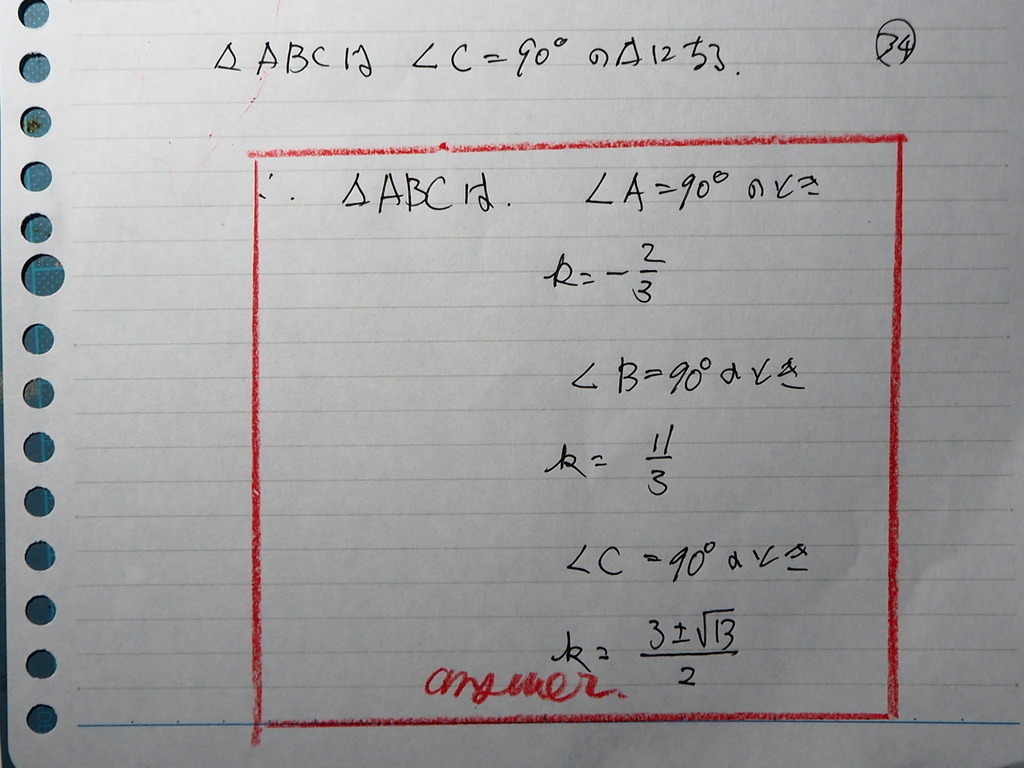 △ABCは ∠C=90°の△になる.
34
∴ △ABCは. ∠A=90°のとき
k=-2/3
∠B=90°のとき
k=11/3
∠C=90°のとき
k=(3±√13)/2
answer.